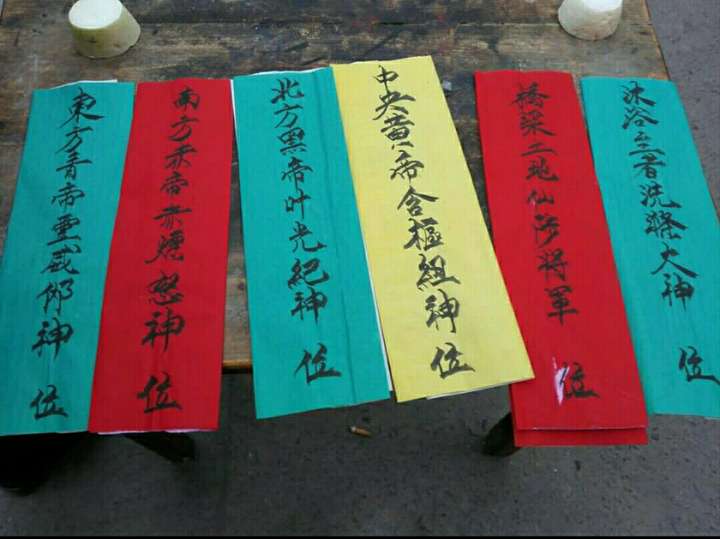 東方青帝靈威仰神位
南方赤帝赤熛怒神位
北方黑帝叶光紀神位
中央黄帝含樞組神位
橋梁土地仙涉將軍位
沐浴主者洗滌大神位